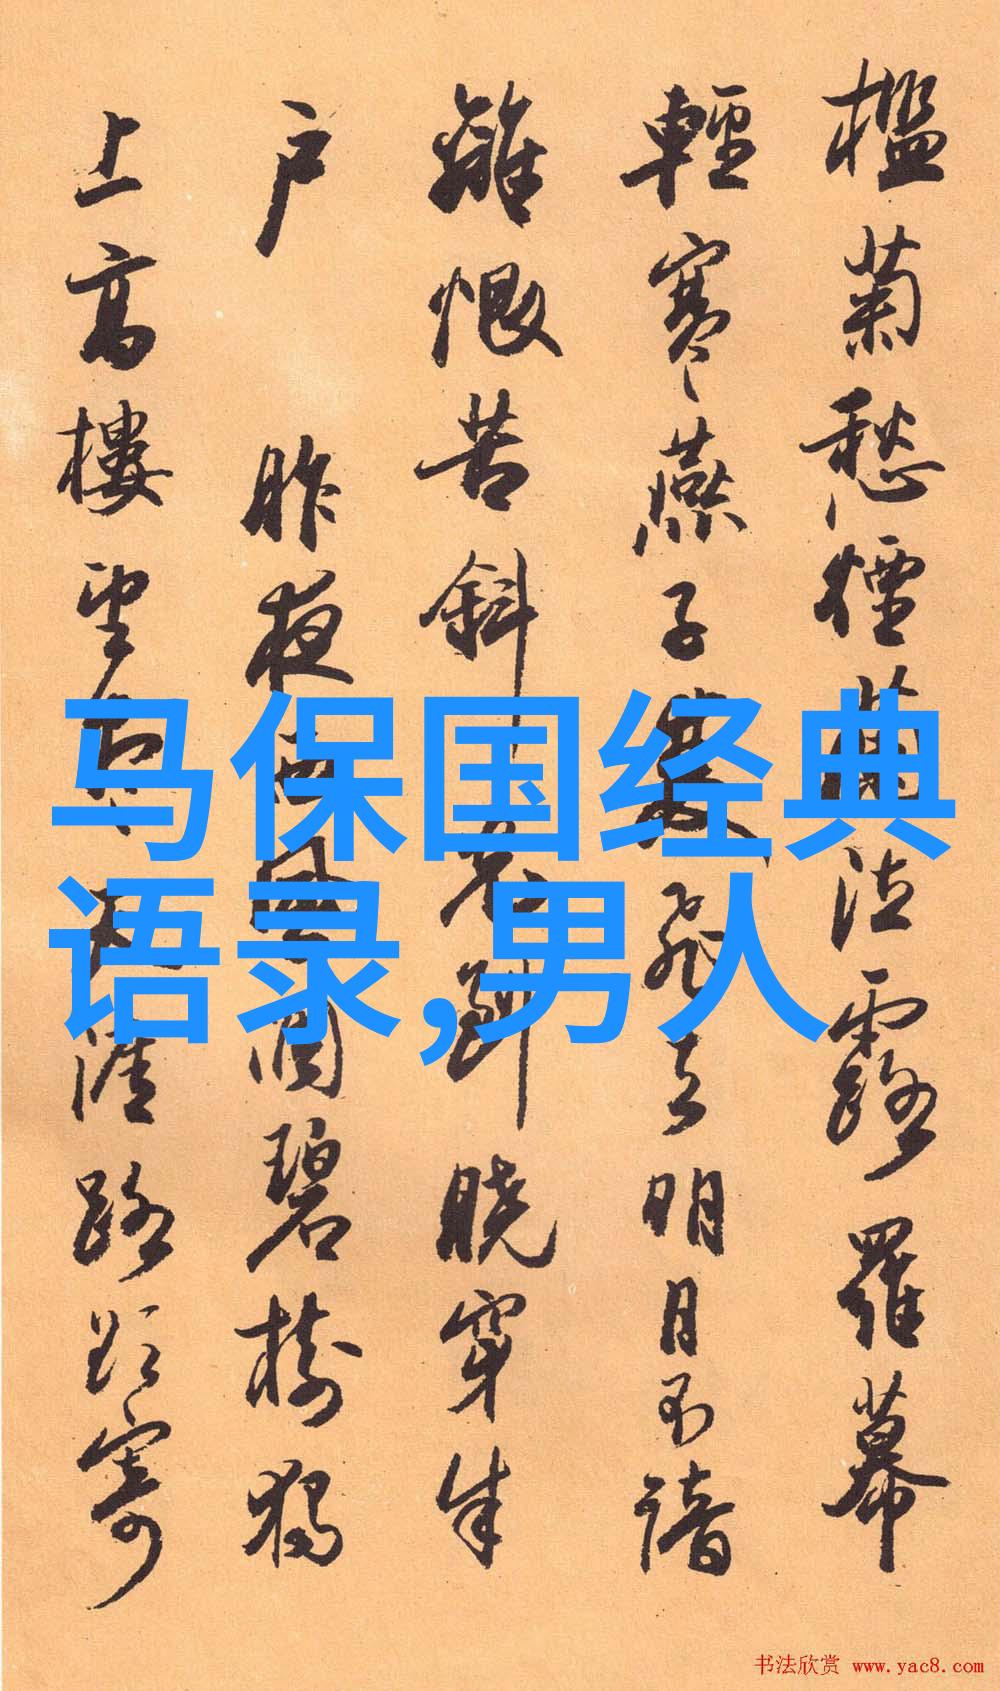 檻菊愁煙蘭泣露羅幕
輕寒燕子雙飛去明月不諳
離恨苦斜光到曉穿朱
户 昨夜西風凋碧樹獨
上高樓望盡天涯路欲寄
马保国经典
语录,男人
书法欣赏 www.yac8.com